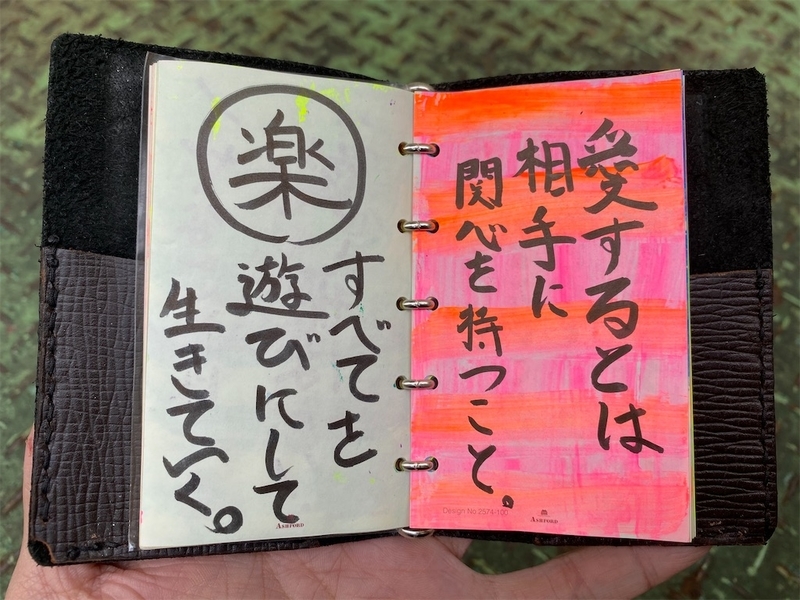 愛するとは
相手に
関心を持つこと。
Design No.2574-100
ASHFORD
楽
すべてを
遊びにして
生きていく。
ASHFORD